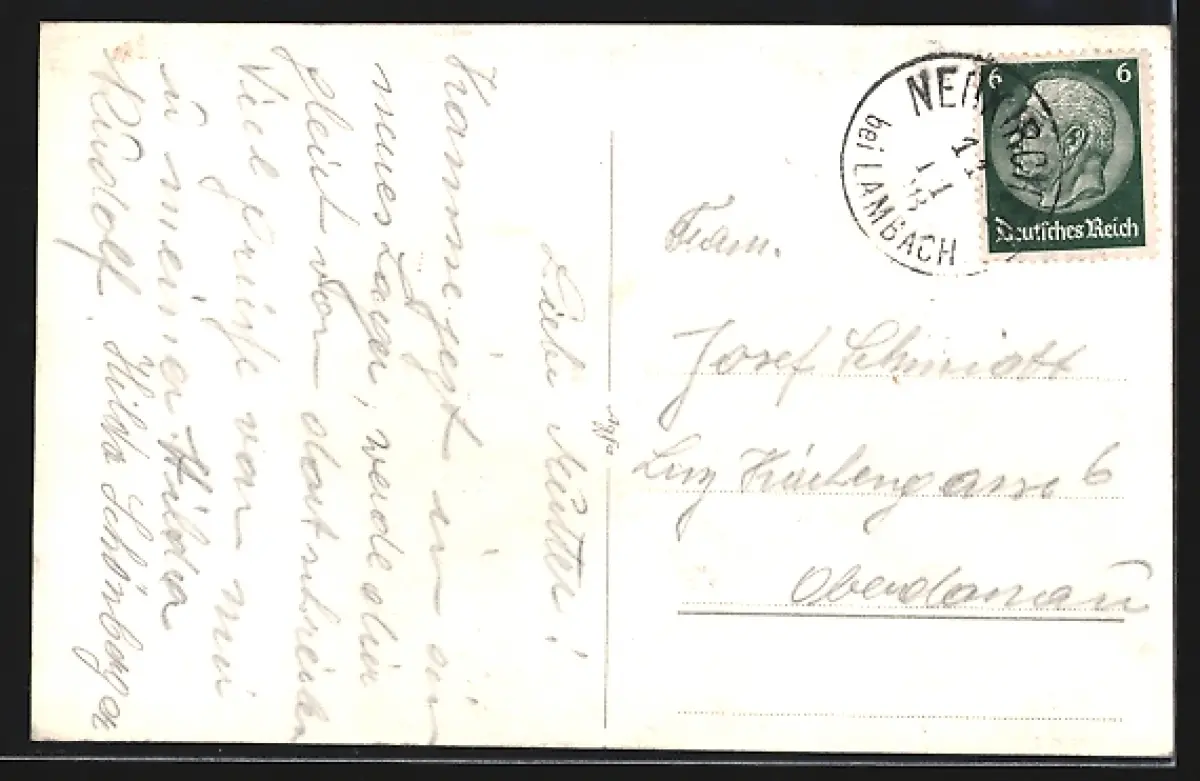 Liebe Mutter!
Komme jetzt in ein
neues Lager, werde dir
gleich von dort schreiben
Viele Grüsse von mir
u meiner Hilda
Rudolf. Hilda Schönberger
NEUKIRCHEN
bei LAMBACH
11
11
38
6 6
Deutsches Reich
Fam.
Josef Schmidt
Linz Kirchengasse 6
Oberdonau